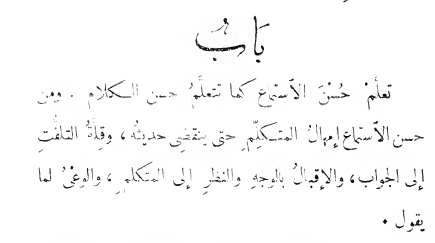 بَابُ
تعلَّمْ حُسْنَ الاستماع كما تتعلَّمُ حسن الكلام . ومن
حسن الاستماع إمهالُ المتكلِّمِ حتى ينقضِى حديثُه ، وقلةُ التلفُّتِ
إلى الجواب ، والإقبالُ بالوجهِ والنظرِ إلى المتكلمِ ، والوعْىُ لما
يقول .